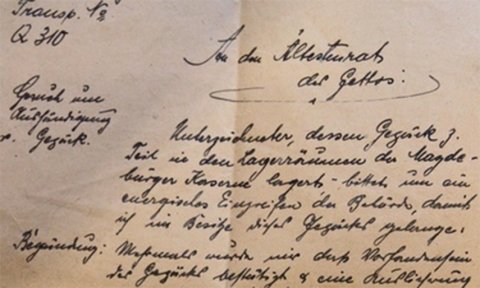 Transp. №
Q 310
An den Ältestenrat
des Gettos:
Gesuch um
Aushändigung
v. Gepäck.
Unterzeichneter, dessen Gepäck z.
Teil in den Lagerräumen der Magde-
burger Kaserne lagert - bittet um ein
energisches Eingreifen der Behörde, damit
ich im Besitze dieses Gepäcks gelange:
Begründung: Mehrmals wurde mir das Vorhandensein
des Gepäcks bestätigt & eine Auslieferung